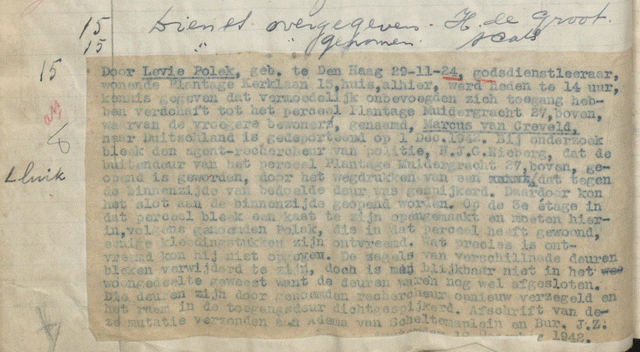 15 Dienst overgegeven. H. de Groot.
15 " " genomen.
15
Door Levie Polek, geb. te Den Haag 29-11-24, godsdienstleeraar,
wonende Plantage Kerklaan 15,huis,alhier, werd heden te 14 uur,
kennis gegeven dat vermoedelijk onbevoegden zich toegang heb-
ben verschaft tot het perceel Plantage Muidergracht 27,boven,
waarvan de vroegere bewoners, genaamd, Marcus van Creveld,
naar Duitschland is gedeporteerd op 1 Dec.1942. Bij onderzoek
bleek den agent-rechercheur van politie, H.J.G.Nieberg, dat de
buitendeur van het perceel Plantage Muidergracht 27,boven, ge-
opend is geworden, door het wegdrukken van een dat tegen
de binnenzijde van bedoelde deur was gespijkerd. Daardoor kon
het slot aan de binnenzijde geopend worden. Op de 3e étage in
dat perceel bleek een kast te zijn opengemaakt en moeten hier-
in,volgens genoemden Polak, die in dat perceel heeft gewoond,
eenige kleedingstukken zijn ontvreemd. Wat precies is ont-
vreemd kon hij niet opgeven. De zegels van verschillende deuren
bleken verwijderd te zijn, doch is men blijkbaar niet in het
woongedeelte geweest want de deuren waren nog wel afgesloten.
Die deuren zijn door genoemden rechercheur opnieuw verzegeld en
het raam in de toegangsdeur dichtgespijkerd. Afschrift van de-
ze mutatie verzonden aan Adama van Scheltemaplein en Bur. J.Z.
1942.